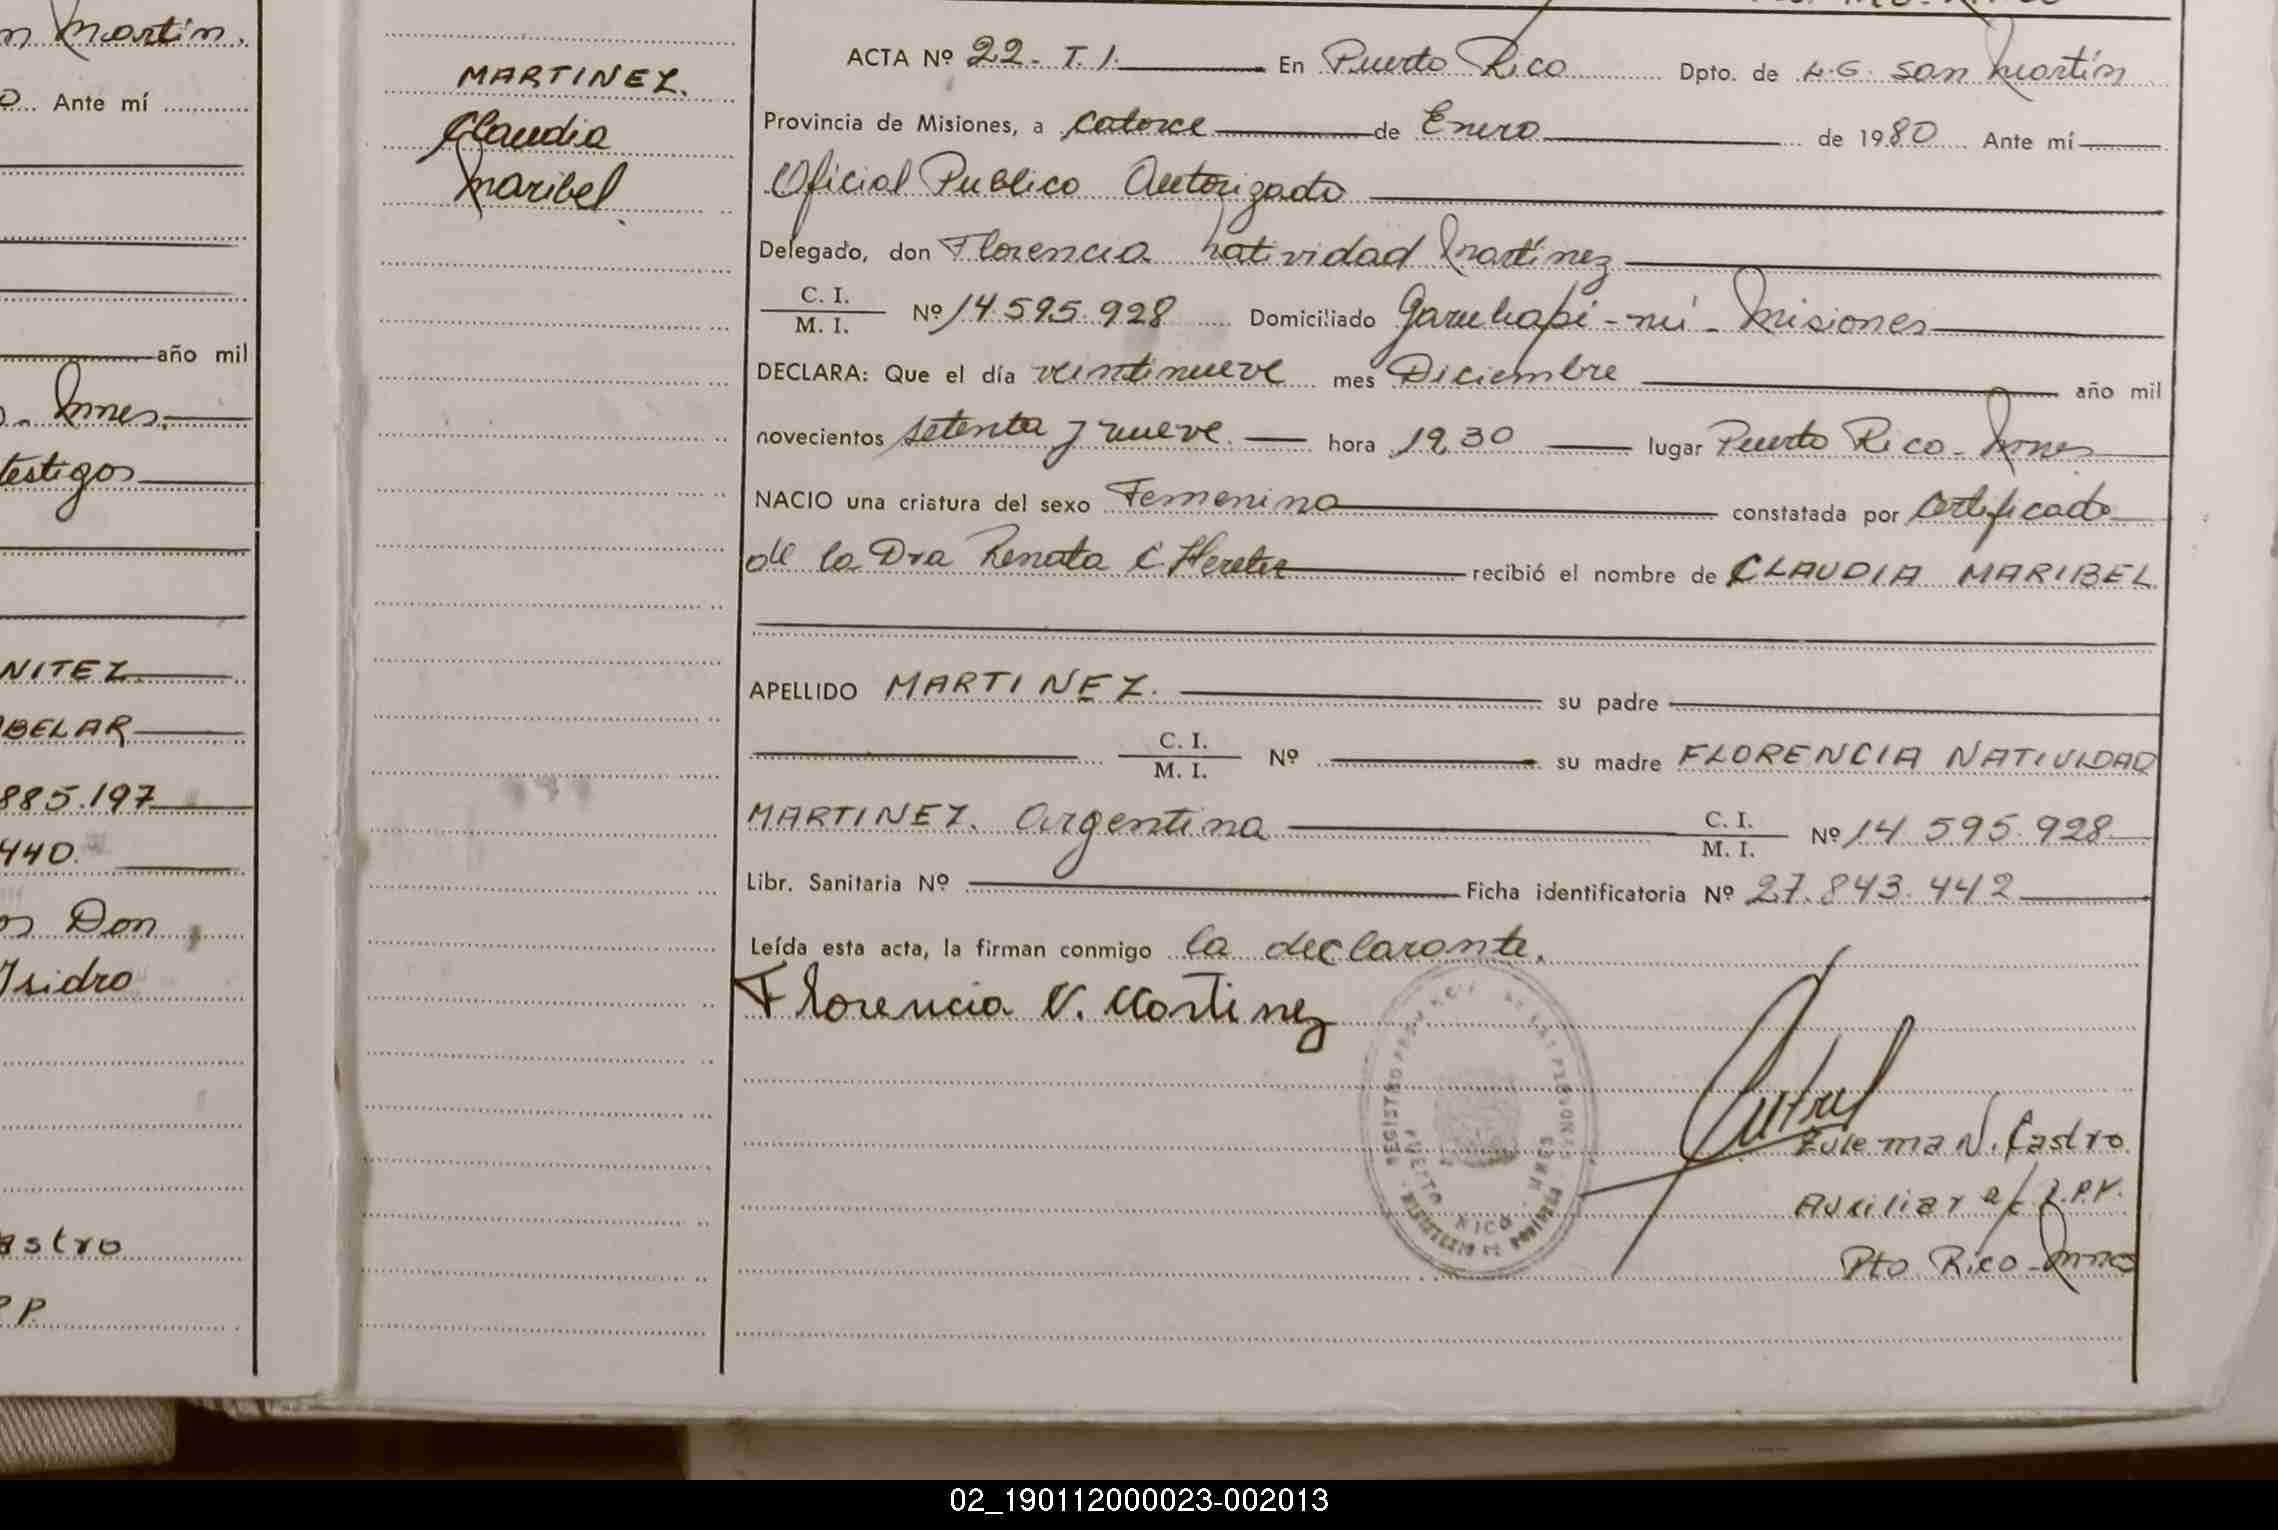 n Martín.
o. Ante mí
año mil
o. Mnes.
testigos
NITEZ
BELAR
885.197
440.
os Don
Isidro
astro
P.P.
MARTINEZ.
Claudia
Maribel.
ACTA Nº 22- T. I. En Puerto Rico Dpto. de L.G. San Martín
Provincia de Misiones, a catorce de Enero de 1980 Ante mí
Oficial Publico Autorizado
Delegado, don Florencia Natividad Martínez
C. I.
M. I. Nº 14.595.928 Domiciliado Garuhapé-mí- Misiones
DECLARA: Que el día veintinueve mes Diciembre año mil
novecientos setenta y nueve. hora 19,30 lugar Puerto Rico- Mnes
NACIO una criatura del sexo Femenino constatada por certificado
de la Dra Renata C. recibió el nombre de CLAUDIA MARIBEL
APELLIDO MARTINEZ. su padre
C. I.
M. I. Nº su madre FLORENCIA NATIVIDAD
MARTINEZ. Argentina C. I.
M. I. Nº 14.595.928
Libr. Sanitaria Nº Ficha identificatoria Nº 27.843.442
Leída esta acta, la firman conmigo la declarante.
Florencia N. Martinez
REGISTRO DE LAS PERSONAS
PUERTO RICO - MNES
Zulema N. Castro
Auxiliar a/c R.P.P.
Pto Rico- Mnes
02_190112000023-002013